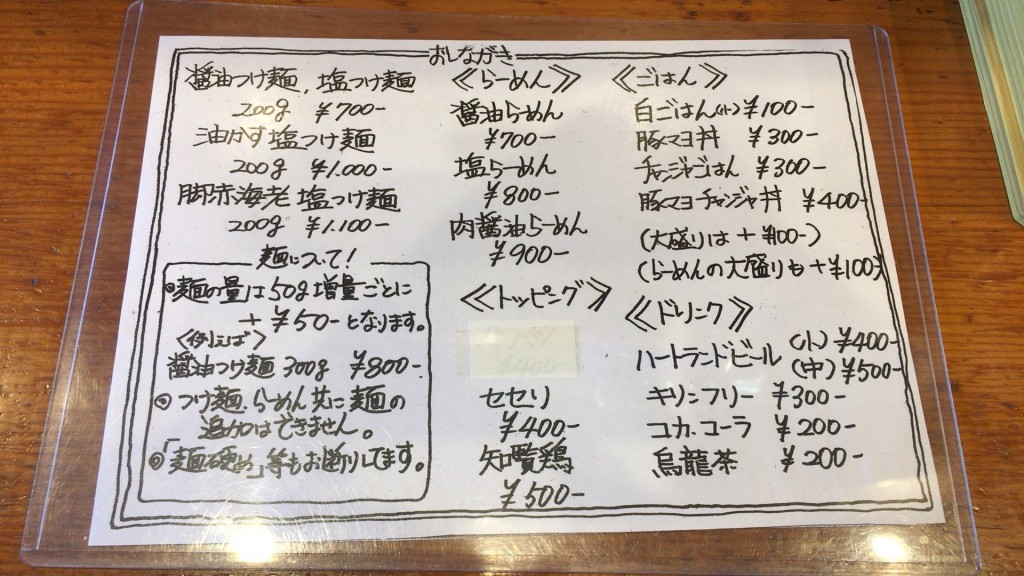 おしながき
醤油つけ麺、塩つけ麺
200g ¥700-
油かす塩つけ麺
200g ¥1.000-
脚赤海老塩つけ麺
200g ¥1.100-
麺について！
麺の量は50g増量ごとに
+¥50-となります。
〈例えば〉
醤油つけ麺300g ¥800-
つけ麺、らーめん共に麺の
追加はできません。
「麺硬め」等もお断りしてます。
《らーめん》
醤油らーめん
¥700-
塩らーめん
¥800-
肉醤油らーめん
¥900-
《トッピング》
セセリ
¥400-
知覧鶏
¥500-
《ごはん》
白ごはん(小)¥100-
豚マヨ丼 ¥300-
チャンジャごはん ¥300-
豚マヨチャンジャ丼 ¥400-
(大盛りは+¥100-)
(らーめんの大盛りも+¥100)
《ドリンク》
ハートランドビール (小)¥400-
(中)¥500-
キリンフリー ¥300-
コカ.コーラ ¥200-
烏龍茶 ¥200-